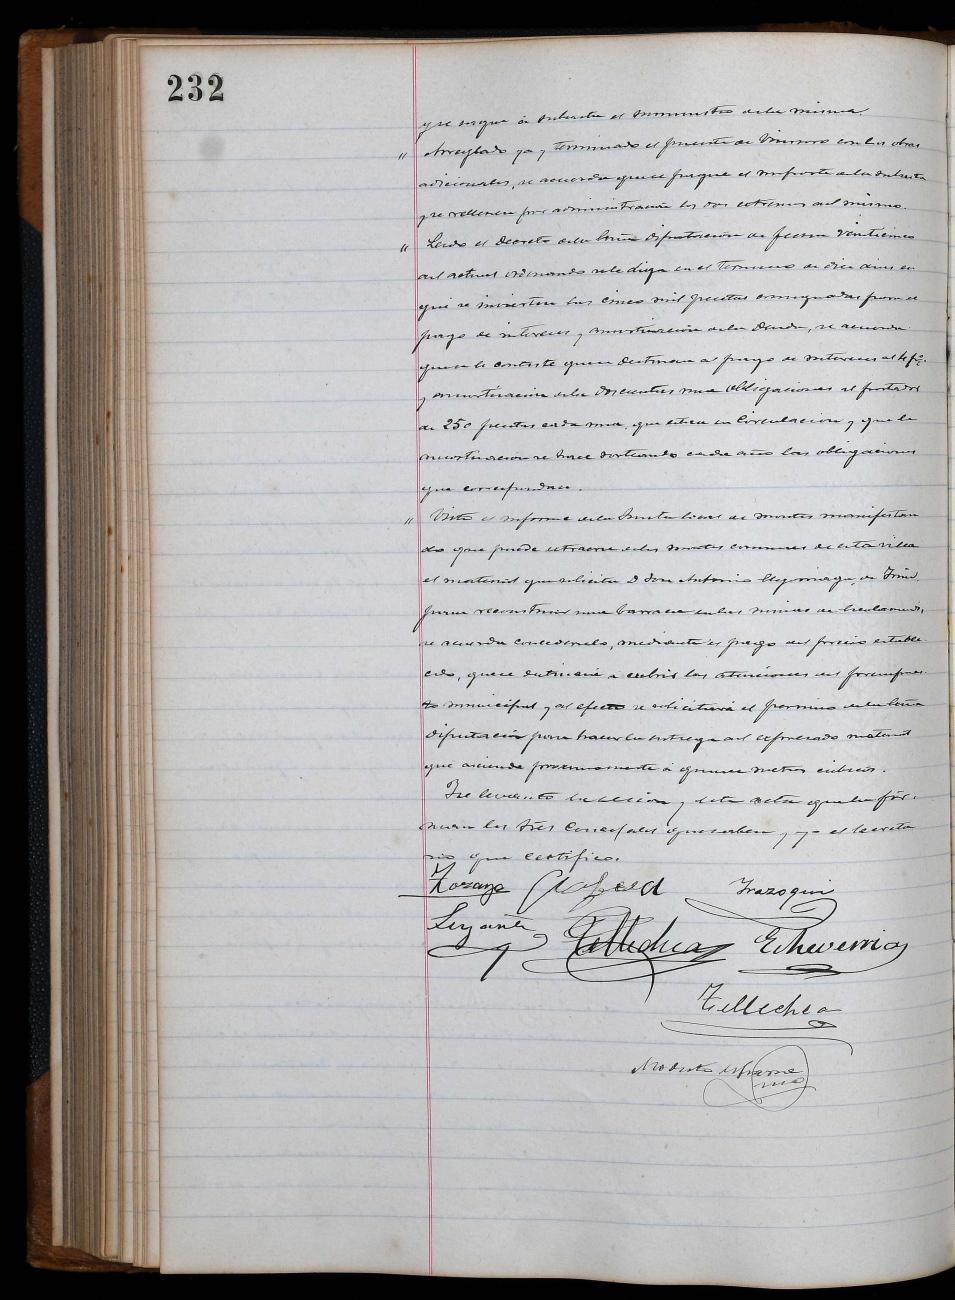 232
y se saque á subasta el suministro de la misma.
" Arreglado ya y terminado el puente de con las obras
adicionales, se acuerda que se pague el importe de la subasta
y se rellenen por administración los dos extremos del mismo.
" Leido el Decreto de la Excma Diputación de fecha veinticinco
del actual ordenando se le diga en el termino de diez dias en
qué se invierten las cinco mil pesetas consignadas para el
pago de intereses y amortización de la Deuda, se acuerda
que se le conteste que se destinan al pago de intereses al 4 p%
y amortización de las doscientas una obligaciones al portador
de 250 pesetas cada una, que están en circulación y que la
amortización se hace sorteando cada año las obligaciones
que correspondan.
" Visto el informe de la Junta local de montes manifestan
do que puede extraerse de los montes comunes de esta villa
el material que solicita D. Antonio de Irún,
para reconstruir una barraca en las minas de
se acuerda concederselo, mediante el pago del precio estable
cido, que se destinará a cubrir las atenciones del presupues
to municipal y al efecto se solicitará el permiso de la Excma
Diputación para hacer la entrega del expresado material
que asciende proximamente á quince metros cúbicos.
Y se levantó la sesión y esta acta que la fir-
man los tres Concejales que saben y yo el Secreta
rio que certifico.
Irazoqui
Tellechea Echeverria
Tellechea
Modesto